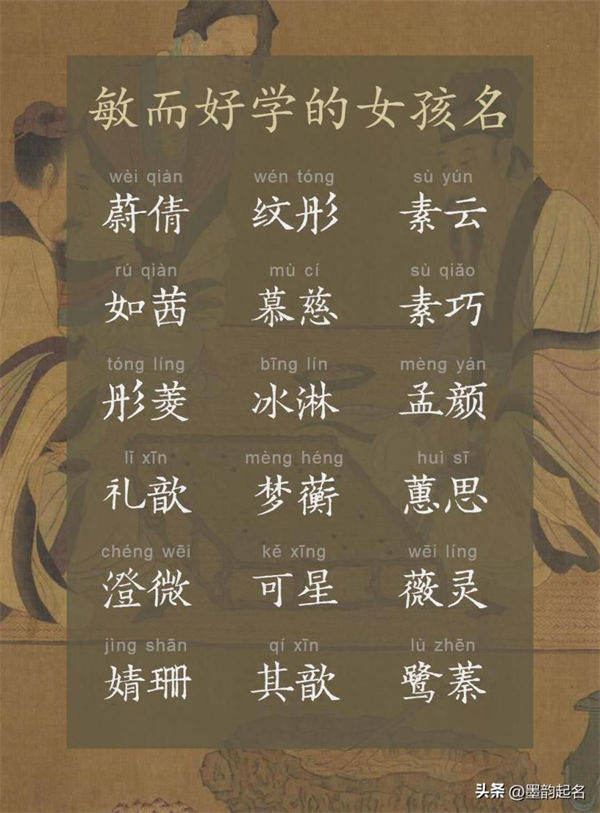 敏而好学的女孩名
wèi qiàn wén tóng sù yún
蔚倩 纹彤 素云
rú qiàn mù cí sù qiǎo
如茜 慕慈 素巧
tóng líng bīng lín mèng yán
彤菱 冰淋 孟颜
lǐ xīn mèng héng huì sī
礼歆 梦蘅 蕙思
chéng wēi kě xīng wēi líng
澄微 可星 薇灵
jìng shān qí xīn lù zhēn
婧珊 其歆 鹭蓁
头条 @墨韵起名